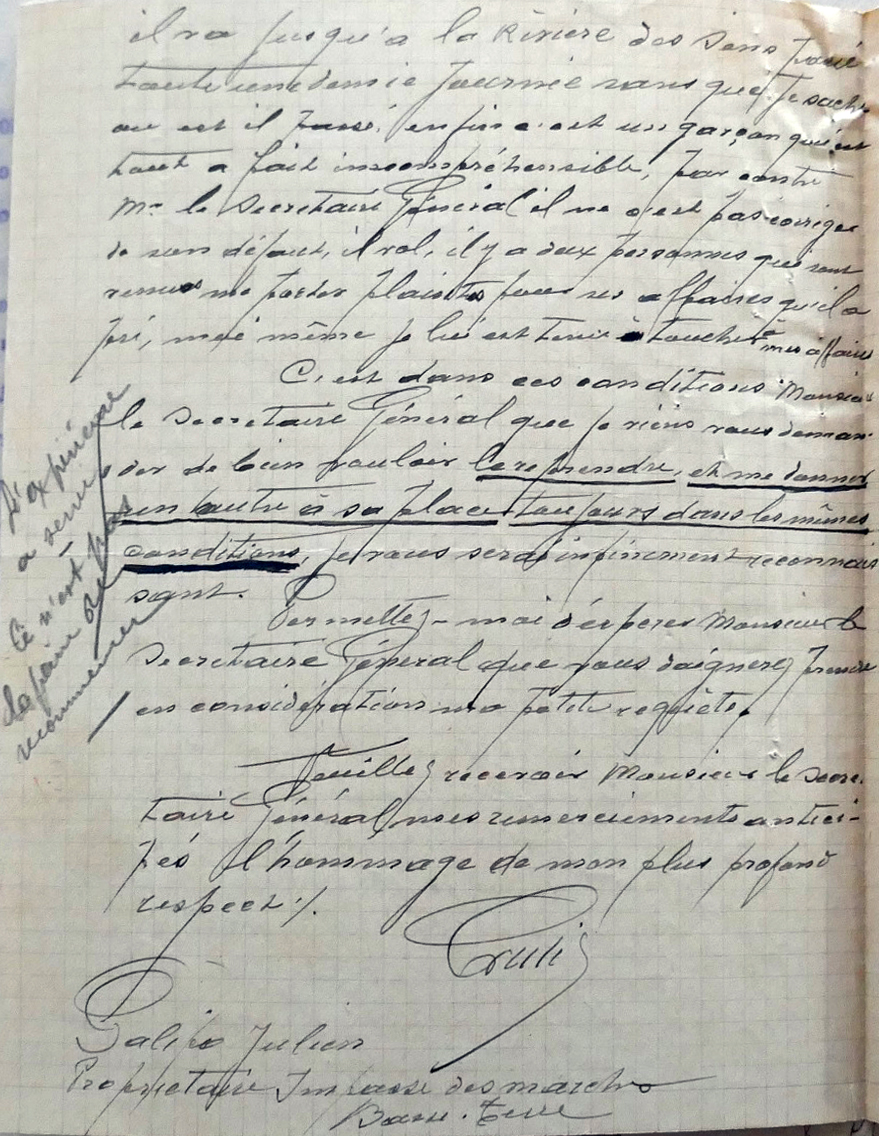 il va jusqu'a la Rivière des Sens passé
toute une demie journée sans que je sache
ou est il passé, enfin c'est un garçon qui est
tout a fait inscompréhensible, par contre
Mr le Secretaire Général il ne c'est pas corriger
de son défaut, il vol, il y a deux personnes qui sont
venus me porter plainte pour ses affaires qu'il a
pri, moi même je lui est tenir à toucher à mes affaires
C'est dans ces conditions Monsieur
le Secretaire Général que je viens vous deman-
der de bien vouloir le reprendre, et me donner
un autre à sa place toujours dans les mêmes
conditions, je vous serai infiniment reconnais
sant.
Permettez-moi d'éspérer Monsieur le
Secretaire Géneral que vous daignerez prendre
en considération ma petite requête.
Veuillez recevoir Monsieur le Secre-
taire Général mes remerciements antici-
pés l'hommage de mon plus profond
respect ./.
Galipo Julien
Propriétaire Impasse des marches
Basse-Terre
L'expérience
a servi
Ce n'est pas
la peine de
recommencer